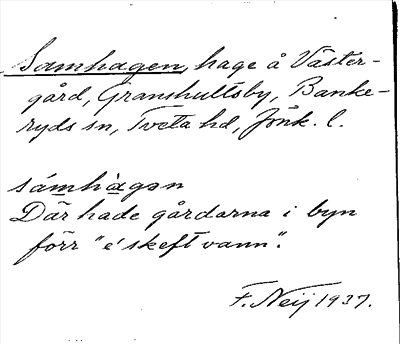 Samhagen, hage å Väster-
gård, Granshultsby, Banke-
ryds sn, Tveta hd, Jönk. l.
sámhàgən
Där hade gårdarna i byn
förr "e' skeft vann".
F. Neij 1937.